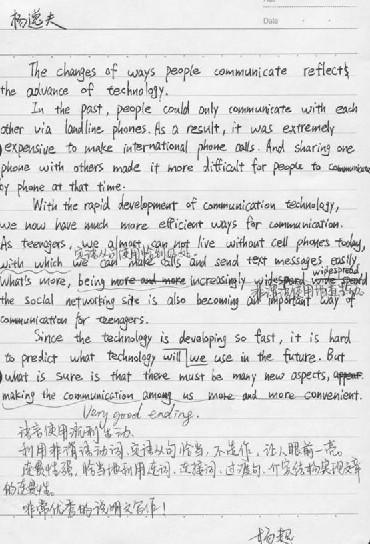 杨逸夫
Date
The changes of ways people communicate reflects
the advance of technology.
In the past, people could only communicate with each
other via landline phones. As a result, it was extremely
expensive to make international phone calls. And sharing one
phone with others made it more difficult for people to communicate
by phone at that time.
With the rapid development of communication technology,
we now have much more efficient ways for communication.
As teenagers, we almost can not live without cell phones today,
定语从句使用恰到好处
with which we can make calls and send text messages easily.
What's more, being more and more increasingly widespread
widespread
the social networking site is also becoming an important way of
communication for teenagers.
Since the technology is developing so fast, it is hard
to predict what technology will we use in the future. But
what is sure is that there must be many new aspects,
making the communication among us more and more convenient.
Very good ending.
语言使用流利生动
利用非谓语动词,定语从句恰当,不造作,让人眼前一亮。
连贯性强,恰当地利用连词,连接词,过渡句,
的连贯性。
非常优秀的说明文写作!